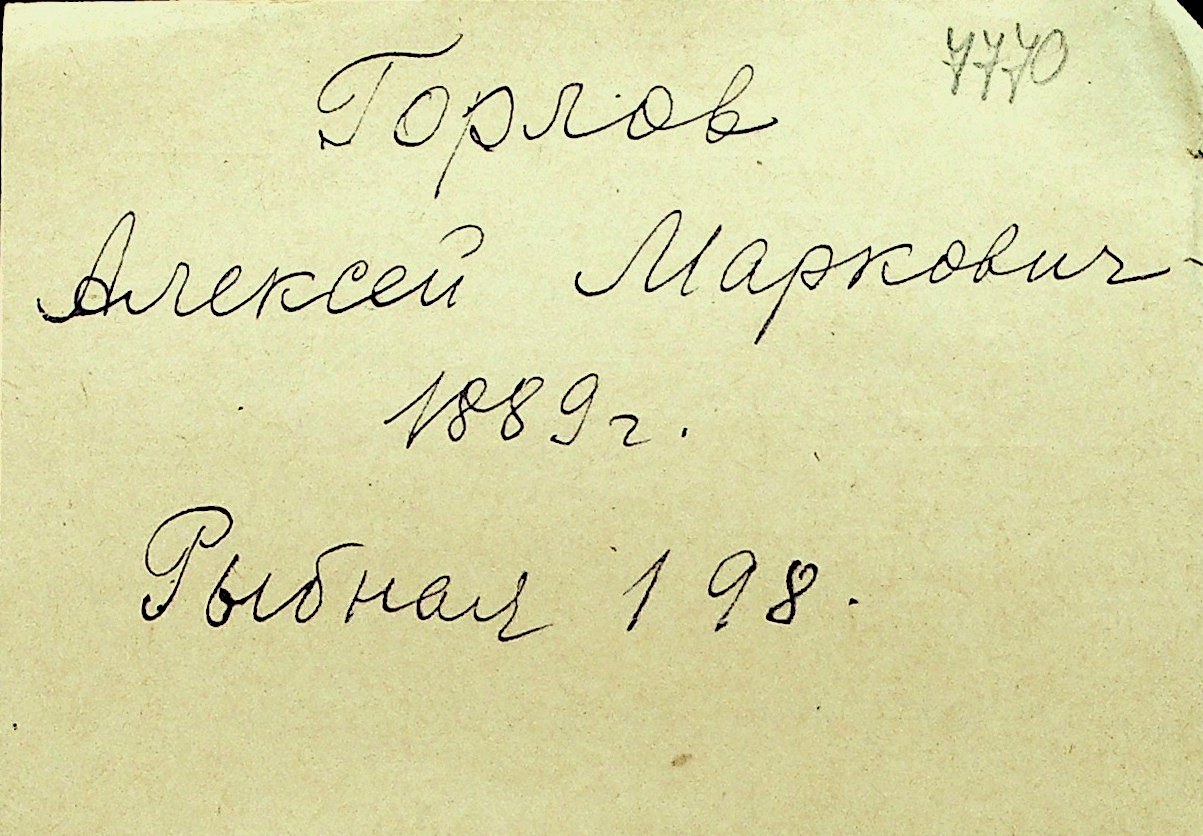 7770
Горлов
Алексей Маркович
1889 г.
Рыбная 198.